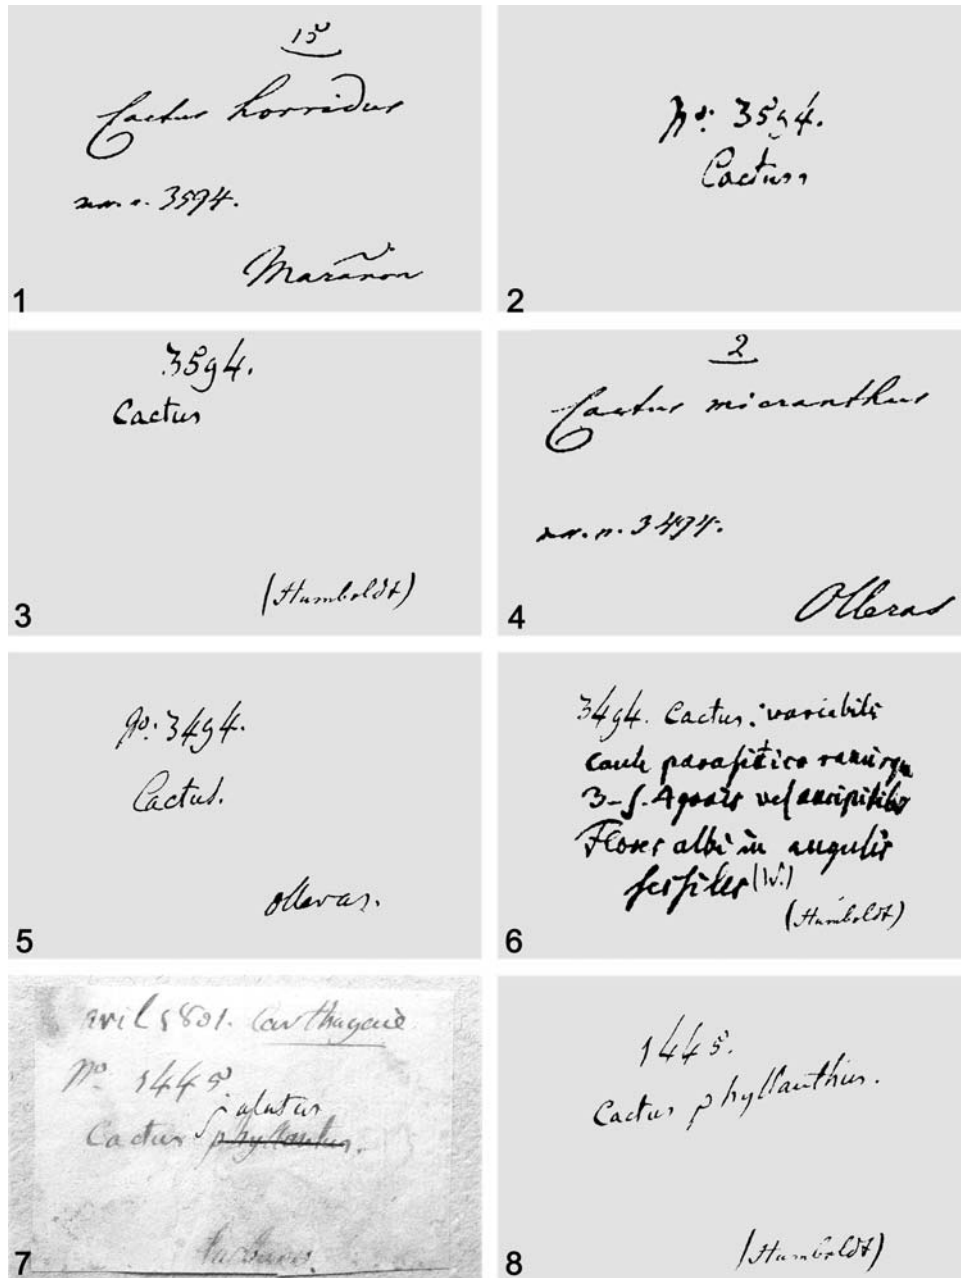 15
Cactus horridus
3594.
Marañon
1
No: 3594.
Cactus
2
3594.
Cactus
(Humboldt)
3
2
Cactus micranthus
n. 3494.
Olleras
4
No: 3494.
Cactus.
olleras.
5
3494. Cactus: variabilis
caule parasitico ramisque
3-5. Agonis vel ancipitibus
Flores albi in angulis
sessiles (W.)
(Humboldt)
6
avril 1801. Carthagene
No 1445.
alatus
Cactus phyllantus.
7
1445.
Cactus phyllanthus.
(Humboldt)
8